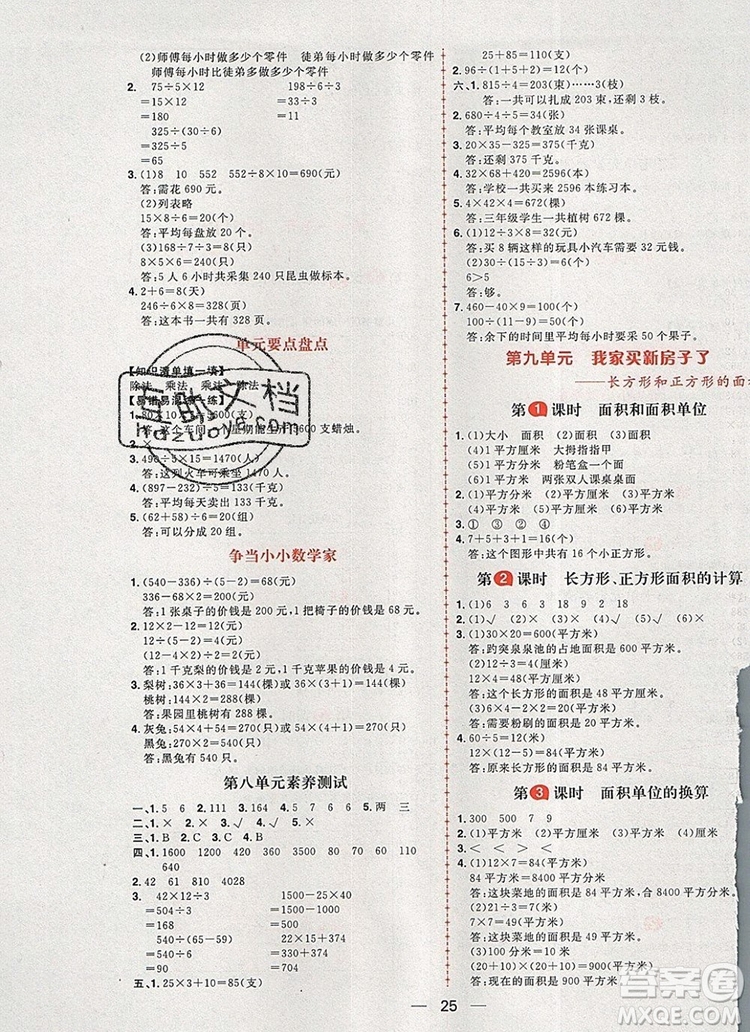 (2)师傅每小时做多少个零件　徒弟每小时做多少个零件
师傅每小时比徒弟多做多少个零件
2.　75÷5×12　　198÷6÷3
=15×12　　=33÷3
=180　　=11
325÷(15÷3)
=325÷5
=65
3.(1)8　10　552　552÷8×10=690(元)
答:需花690元。
(2)列表略
15×8÷6=20(个)
答:平均每盘放20个。
(3)168÷7÷3=8(只)
8×5×6=240(只)
答:5人6小时共采集240只昆虫做标本。
4.2+6=8(天)
246÷6×8=328(页)
答:这本书一共有328页。
单元要点盘点
【知识清单填一填】
除法　乘法　乘法　除法
【易错易混练一练】
答:这个车间一个星期能生产3600支蜡烛。
2.×
答:这列火车可乘坐1470人。
4.(897-232)÷5=133(千克)
答:平均每天卖出133千克。
5.(62+58)÷6=20(组)
答:可以分成20组。
争当小小数学家
1.(540-336)÷(5-2)=68(元)
答:1张桌子的价钱是200元,1把椅子的价钱是68元。
2.12×2-12=12(元)
12÷(5-2)=4(元)
(12-4)÷4=2(元)
答:1千克梨的价钱是4元,1千克苹果的价钱是2元。
3.梨树:36×3+36=144(棵)或36×(3+1)=144(棵)
桃树:144×2=288(棵)
答:果园里桃树有288棵。
黑兔:270×2=540(只)
答:黑兔有540只。
第八单元素养测试
一、1.5　6　2.8　3.111　4.164　5.47　6.5　7.两　三
二、1.×　2.√　3.×　4.√　5.×
三、1.B　2.C　3.B　4.C
2.42　61　8210　4028
3.　42×12÷3　　1500-25×40
=504÷3　　=1500-1000
=168　　=500
540÷(2×3)　　22×(50-9)
=540÷6　　=22×41
=90　　=902
五、1.25×3+10=85(支)
25+85=110(支)
2.96÷(1+5+2)=12(张)
六、1.815÷4=203(束)……3(枝)
答:一共可以扎成203束,还剩3枝。
2.680÷4÷5=34(张)
答:平均每个教室放34张课桌。
答:还剩375千克。
4.32×68+420=2596(本)
答:学校一共买来2596本练习本。
答:三年级学生一共植树606棵。
6.(1)12÷3×8=32(元)
答:买8辆这样的玩具小汽车需要32元钱。
(2)30÷(12-7)=6(分)
6>5
答:够。
7.460-40×9=100(个)
100÷(11-9)=50(个)
答:余下的时间里,平均每小时装50个果子。
第九单元　我家买新房子了
——长方形和正方形的面
第1课时　面积和面积单位
1.(1)大小　面积　(2)面积　(3)面积
(4)1平方厘米　大拇指指甲
(5)1平方分米　粉笔盒一个面
(6)1平方米　两张双人课桌桌面
2.(1)平方分米　(2)平方厘米　(3)平方米　(4)平方厘米
3.①　③　②　④
4.7+5+3+1=16(个)
答:这个图形中共有16个小正方形。
第2课时　长方形、正方形面积的计算
1.(1)6　3　18　3　6　18　(2)3　9　2　18
2.(1)×　(2)√　(3)×　(4)√　(5)√　(6)×
3.(1)30×20=600(平方米)
答:趵突泉泉池的占地面积是600平方米。
(2)12÷3=4(厘米)　12×4=48(平方厘米)
答:这个长方形的面积是48平方厘米。
答:需要粉刷的面积是20平方米。
4.12÷2=6(厘米)
12×(6+1)=84(平方厘米)
答:原来长方形的面积是84平方厘米。
第3课时　面积单位的换算
1.300　500　7　9
2.(1)平方米　(2)平方分米　(3)米　(4)厘米
3.<　<　>　<
4.(1)12×7=84(平方米)
84平方米=8400平方分米
答:这块菜地的面积是84平方米,合8400平方分米。
(2)21÷3=7(米)
7×7=49(平方米)
答:这块菜地的面积是49平方米。
(3)20+10=30(米)
(20+10)×(20+10)=900(平方米)
答:现在的面积是900平方米。
25